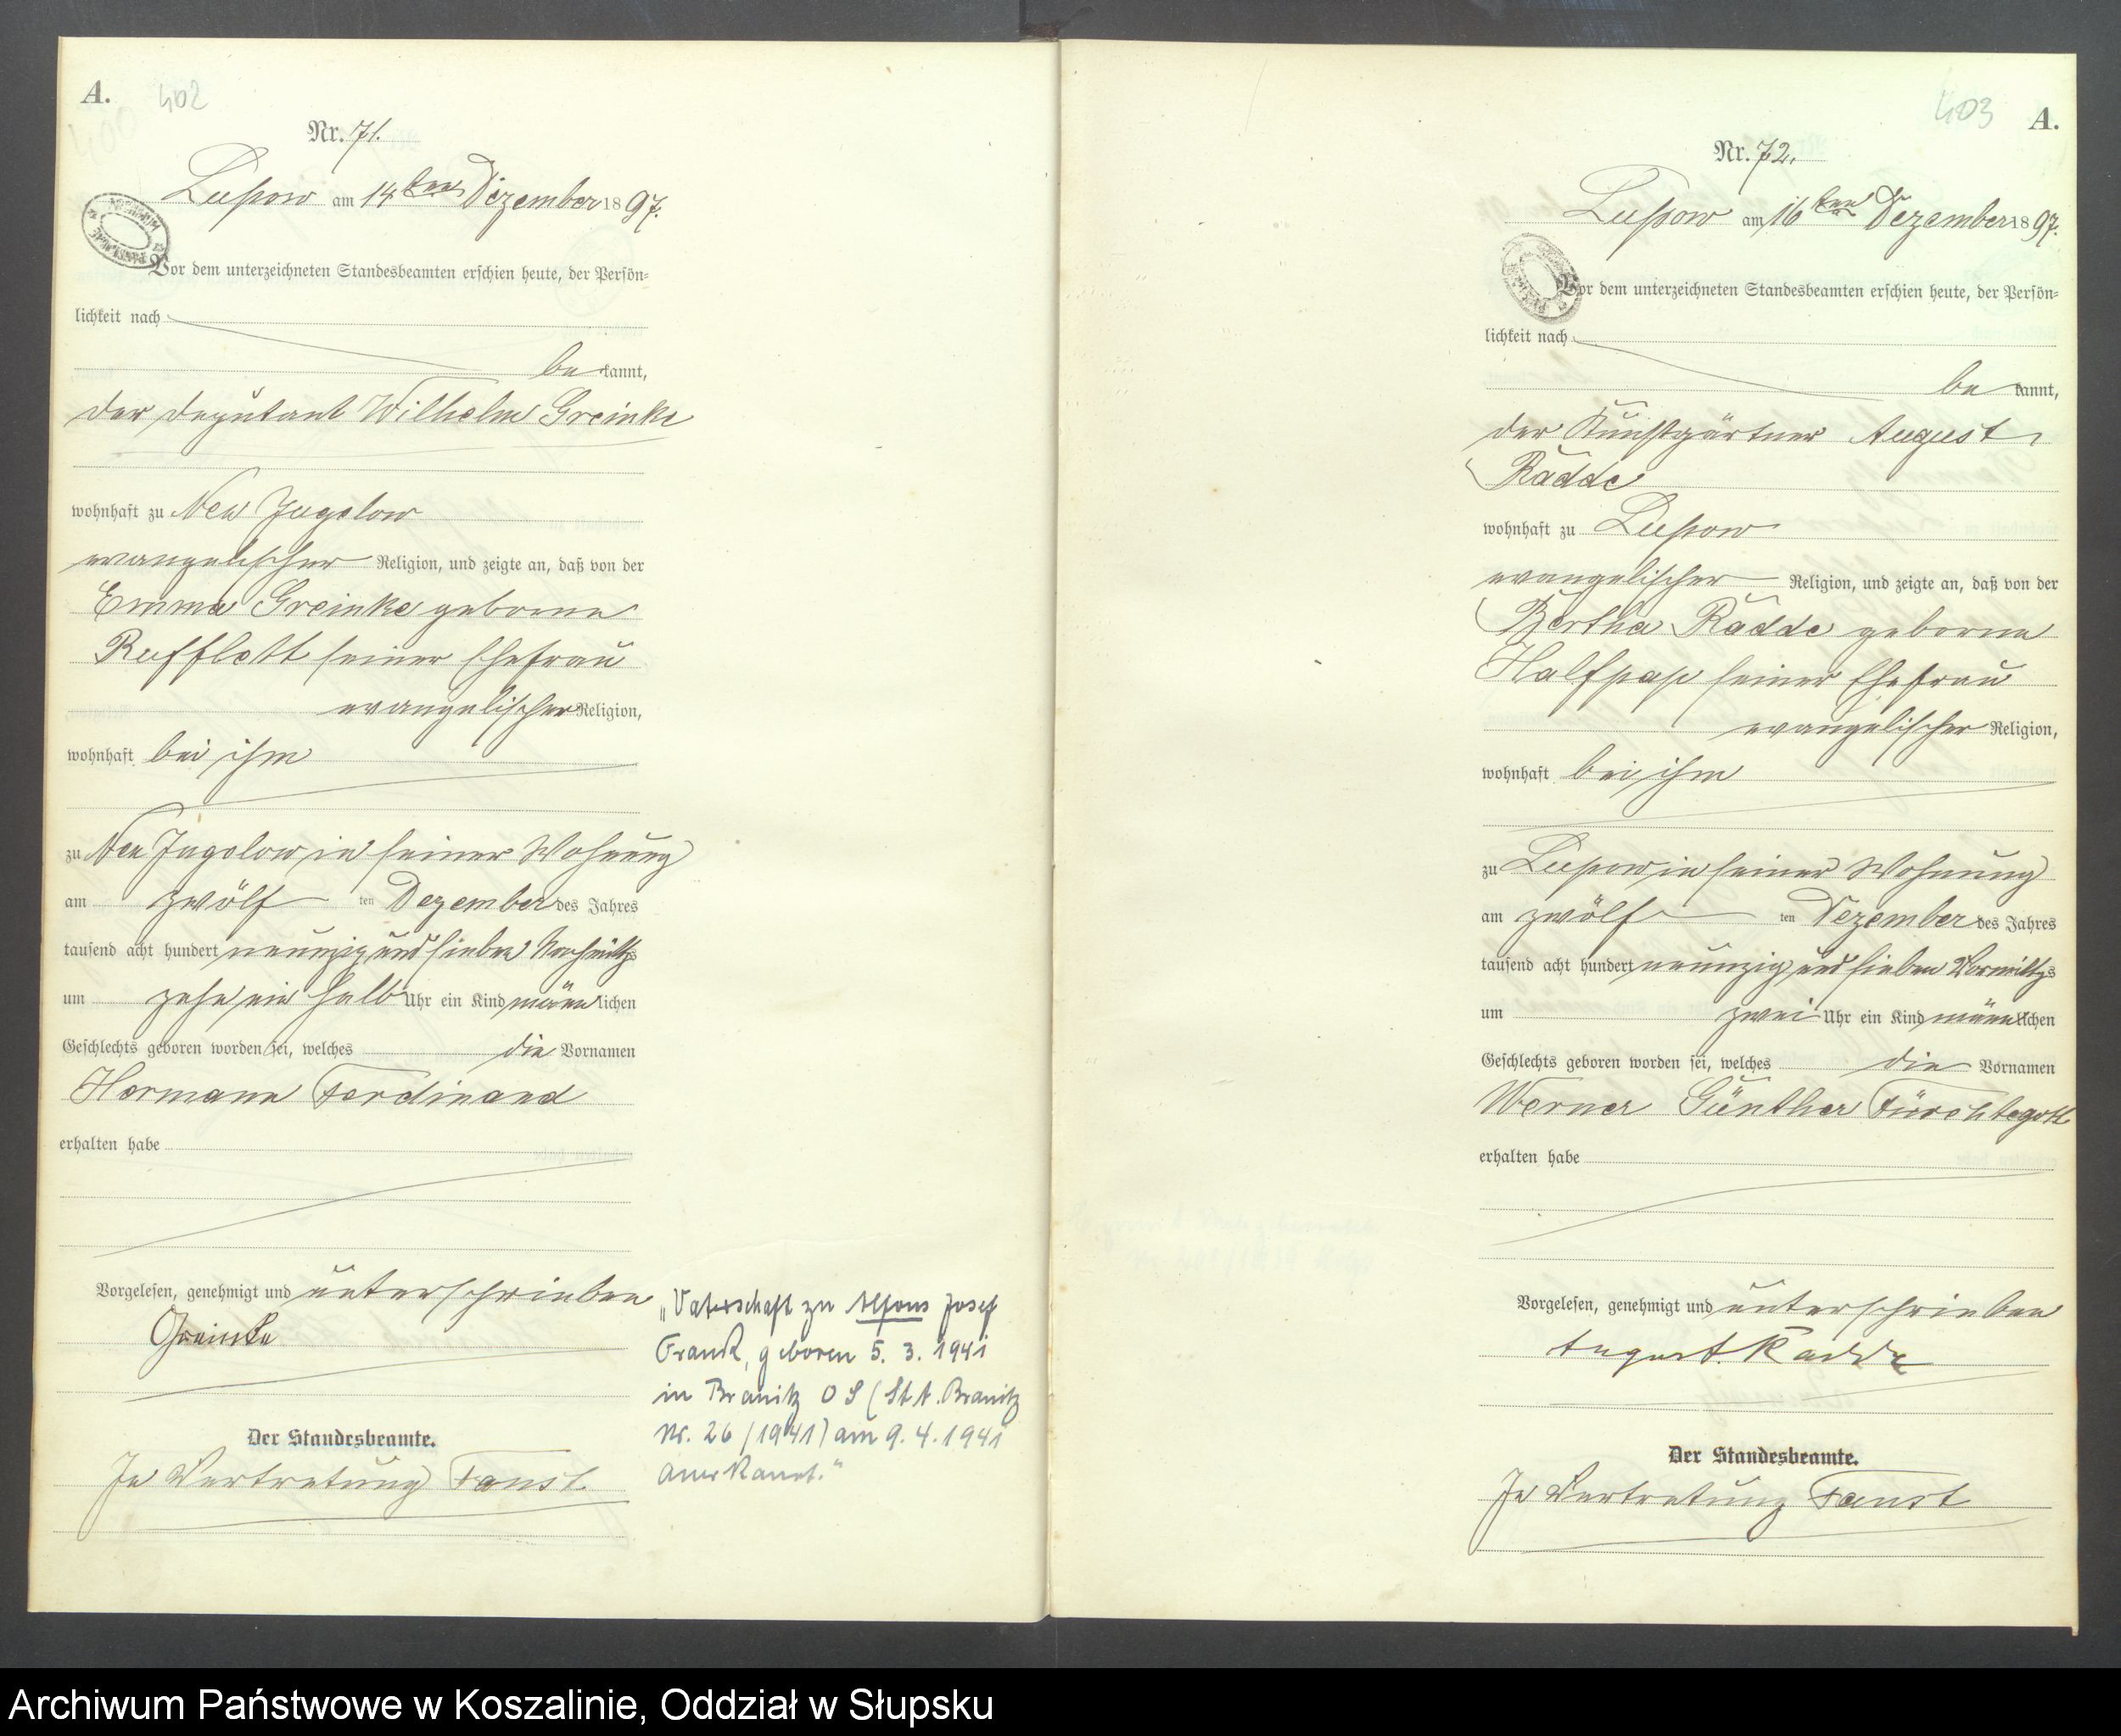 A.
402
400
Nr. 71.
Lupow am 14ten Dezember 1897.
Vor dem unterzeichneten Standesbeamten erschien heute, der Persön-
lichkeit nach
be kannt,
der Deputant Wilhelm Greinke
wohnhaft zu Neu Jugelow
evangelischer Religion, und zeigte an, daß von der
Emma Greinke geborne
Rufflett seiner Ehefrau
evangelischer Religion,
wohnhaft bei ihm
zu Neu Jugelow in seiner Wohnung
am zwölf ten Dezember des Jahres
tausend acht hundert neunzig und sieben Nachmittgs
um zehn ein halb Uhr ein Kind männ lichen
Geschlechts geboren worden sei, welches die Vornamen
Hermann Ferdinand
erhalten habe
Vorgelesen, genehmigt und unterschrieben
Greinke
Der Standesbeamte.
In Vertretung Faust
„Vaterschaft zu Alfons Josef
Frank, geboren 5. 3. 1941
in Branitz O S (St A. Branitz
Nr. 26 / 1941) am 9. 4. 1941
anerkannt.“
403
A.
Nr. 72.
Lupow am 16ten Dezember 1897.
Vor dem unterzeichneten Standesbeamten erschien heute, der Persön-
lichkeit nach
be kannt,
der Kunstgärtner August
Radde
wohnhaft zu Lupow
evangelischer Religion, und zeigte an, daß von der
Bertha Radde geborne
Halfpap seiner Ehefrau
evangelischer Religion,
wohnhaft bei ihm
zu Lupow in seiner Wohnung
am zwölf ten Dezember des Jahres
tausend acht hundert neunzig und sieben Vormittgs
um zwei Uhr ein Kind männlichen
Geschlechts geboren worden sei, welches die Vornamen
Werner Günther Fürchtegott
erhalten habe
Vorgelesen, genehmigt und unterschrieben
August. Radde
Der Standesbeamte.
In Vertretung Faust
Archiwum Państwowe w Koszalinie, Oddział w Słupsku